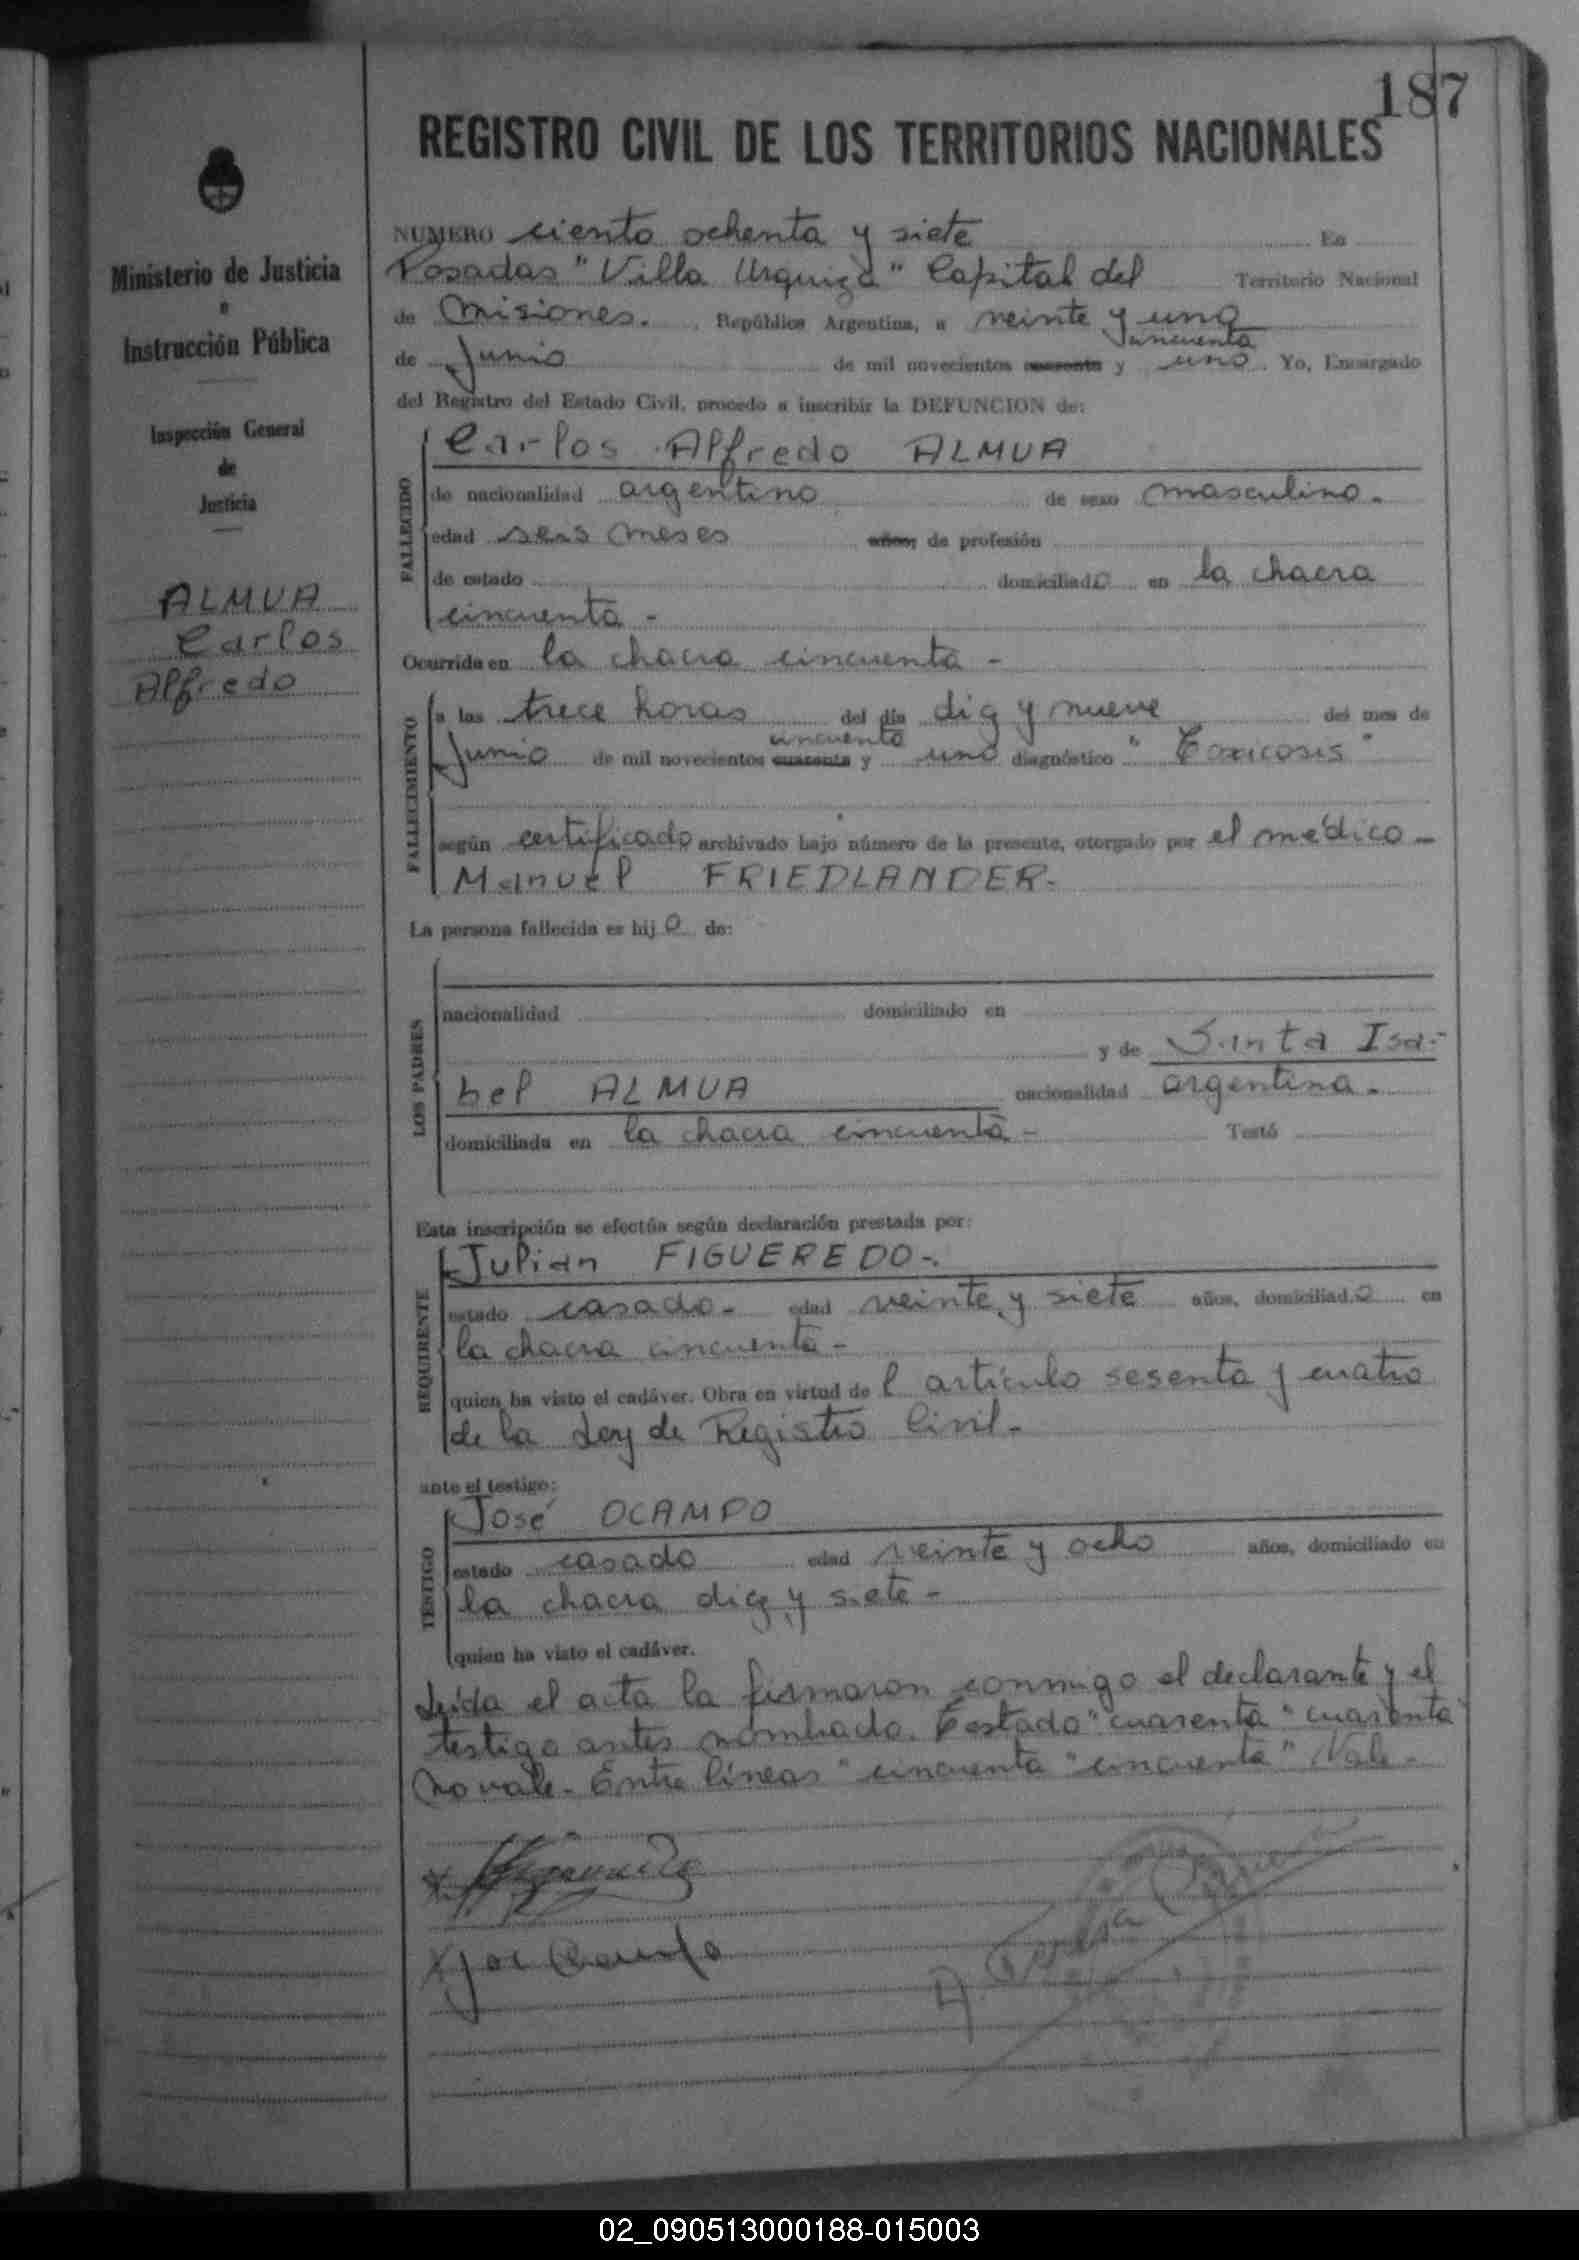 187
REGISTRO CIVIL DE LOS TERRITORIOS NACIONALES
Ministerio de Justicia
e
Instrucción Pública
Inspección General
de
Justicia
ALMUA
Carlos
Alfredo
NUMERO ciento ochenta y siete En
Posadas "Villa Urquiza" Capital del Territorio Nacional
de Misiones. República Argentina, a veinte y uno
cincuenta
de Junio de mil novecientos cuarenta y uno. Yo, Encargado
del Registro del Estado Civil, procedo a inscribir la DEFUNCION de:
FALLECIDO
Carlos Alfredo ALMUA
de nacionalidad argentino de sexo masculino.
edad seis meses años, de profesión
de estado domiciliado en la chacra
cincuenta -
Ocurrida en la chacra cincuenta -
FALLECIMIENTO
a las trece horas del día diez y nueve del mes de
cincuenta
Junio de mil novecientos cuarenta y uno diagnóstico "Toxicosis"
según certificado archivado bajo número de la presente, otorgado por el médico -
Manuel FRIEDLANDER.
La persona fallecida es hijo de:
LOS PADRES
nacionalidad domiciliado en
y de Santa Isa-
bel ALMUA nacionalidad argentina.
domiciliada en la chacra cincuenta - Testó
Esta inscripción se efectúa según declaración prestada por:
REQUIRENTE
Julian FIGUEREDO-.
estado casado - edad veinte y siete años, domiciliado en
la chacra cincuenta -
quien ha visto el cadáver. Obra en virtud del artículo sesenta y cuatro
de la Ley de Registro Civil -
ante el testigo:
TESTIGO
José OCAMPO
estado casado edad veinte y ocho años, domiciliado en
la chacra diez y siete -
quien ha visto el cadáver.
Leída el acta la firmaron conmigo el declarante y el
testigo antes nombrado. Testado "cuarenta" "cuarenta"
No vale - Entre líneas "cincuenta" "cincuenta" Vale -
02_090513000188-015003